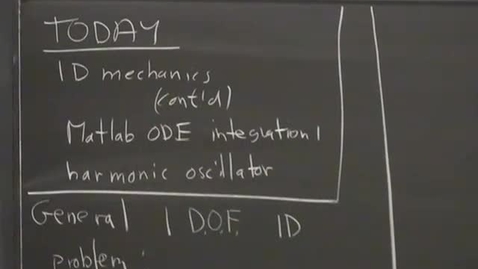 TODAY
1D mechanics
(cont'd)
Matlab ODE integration 1
harmonic oscillator
General 1 D.O.F. 1D
problem: